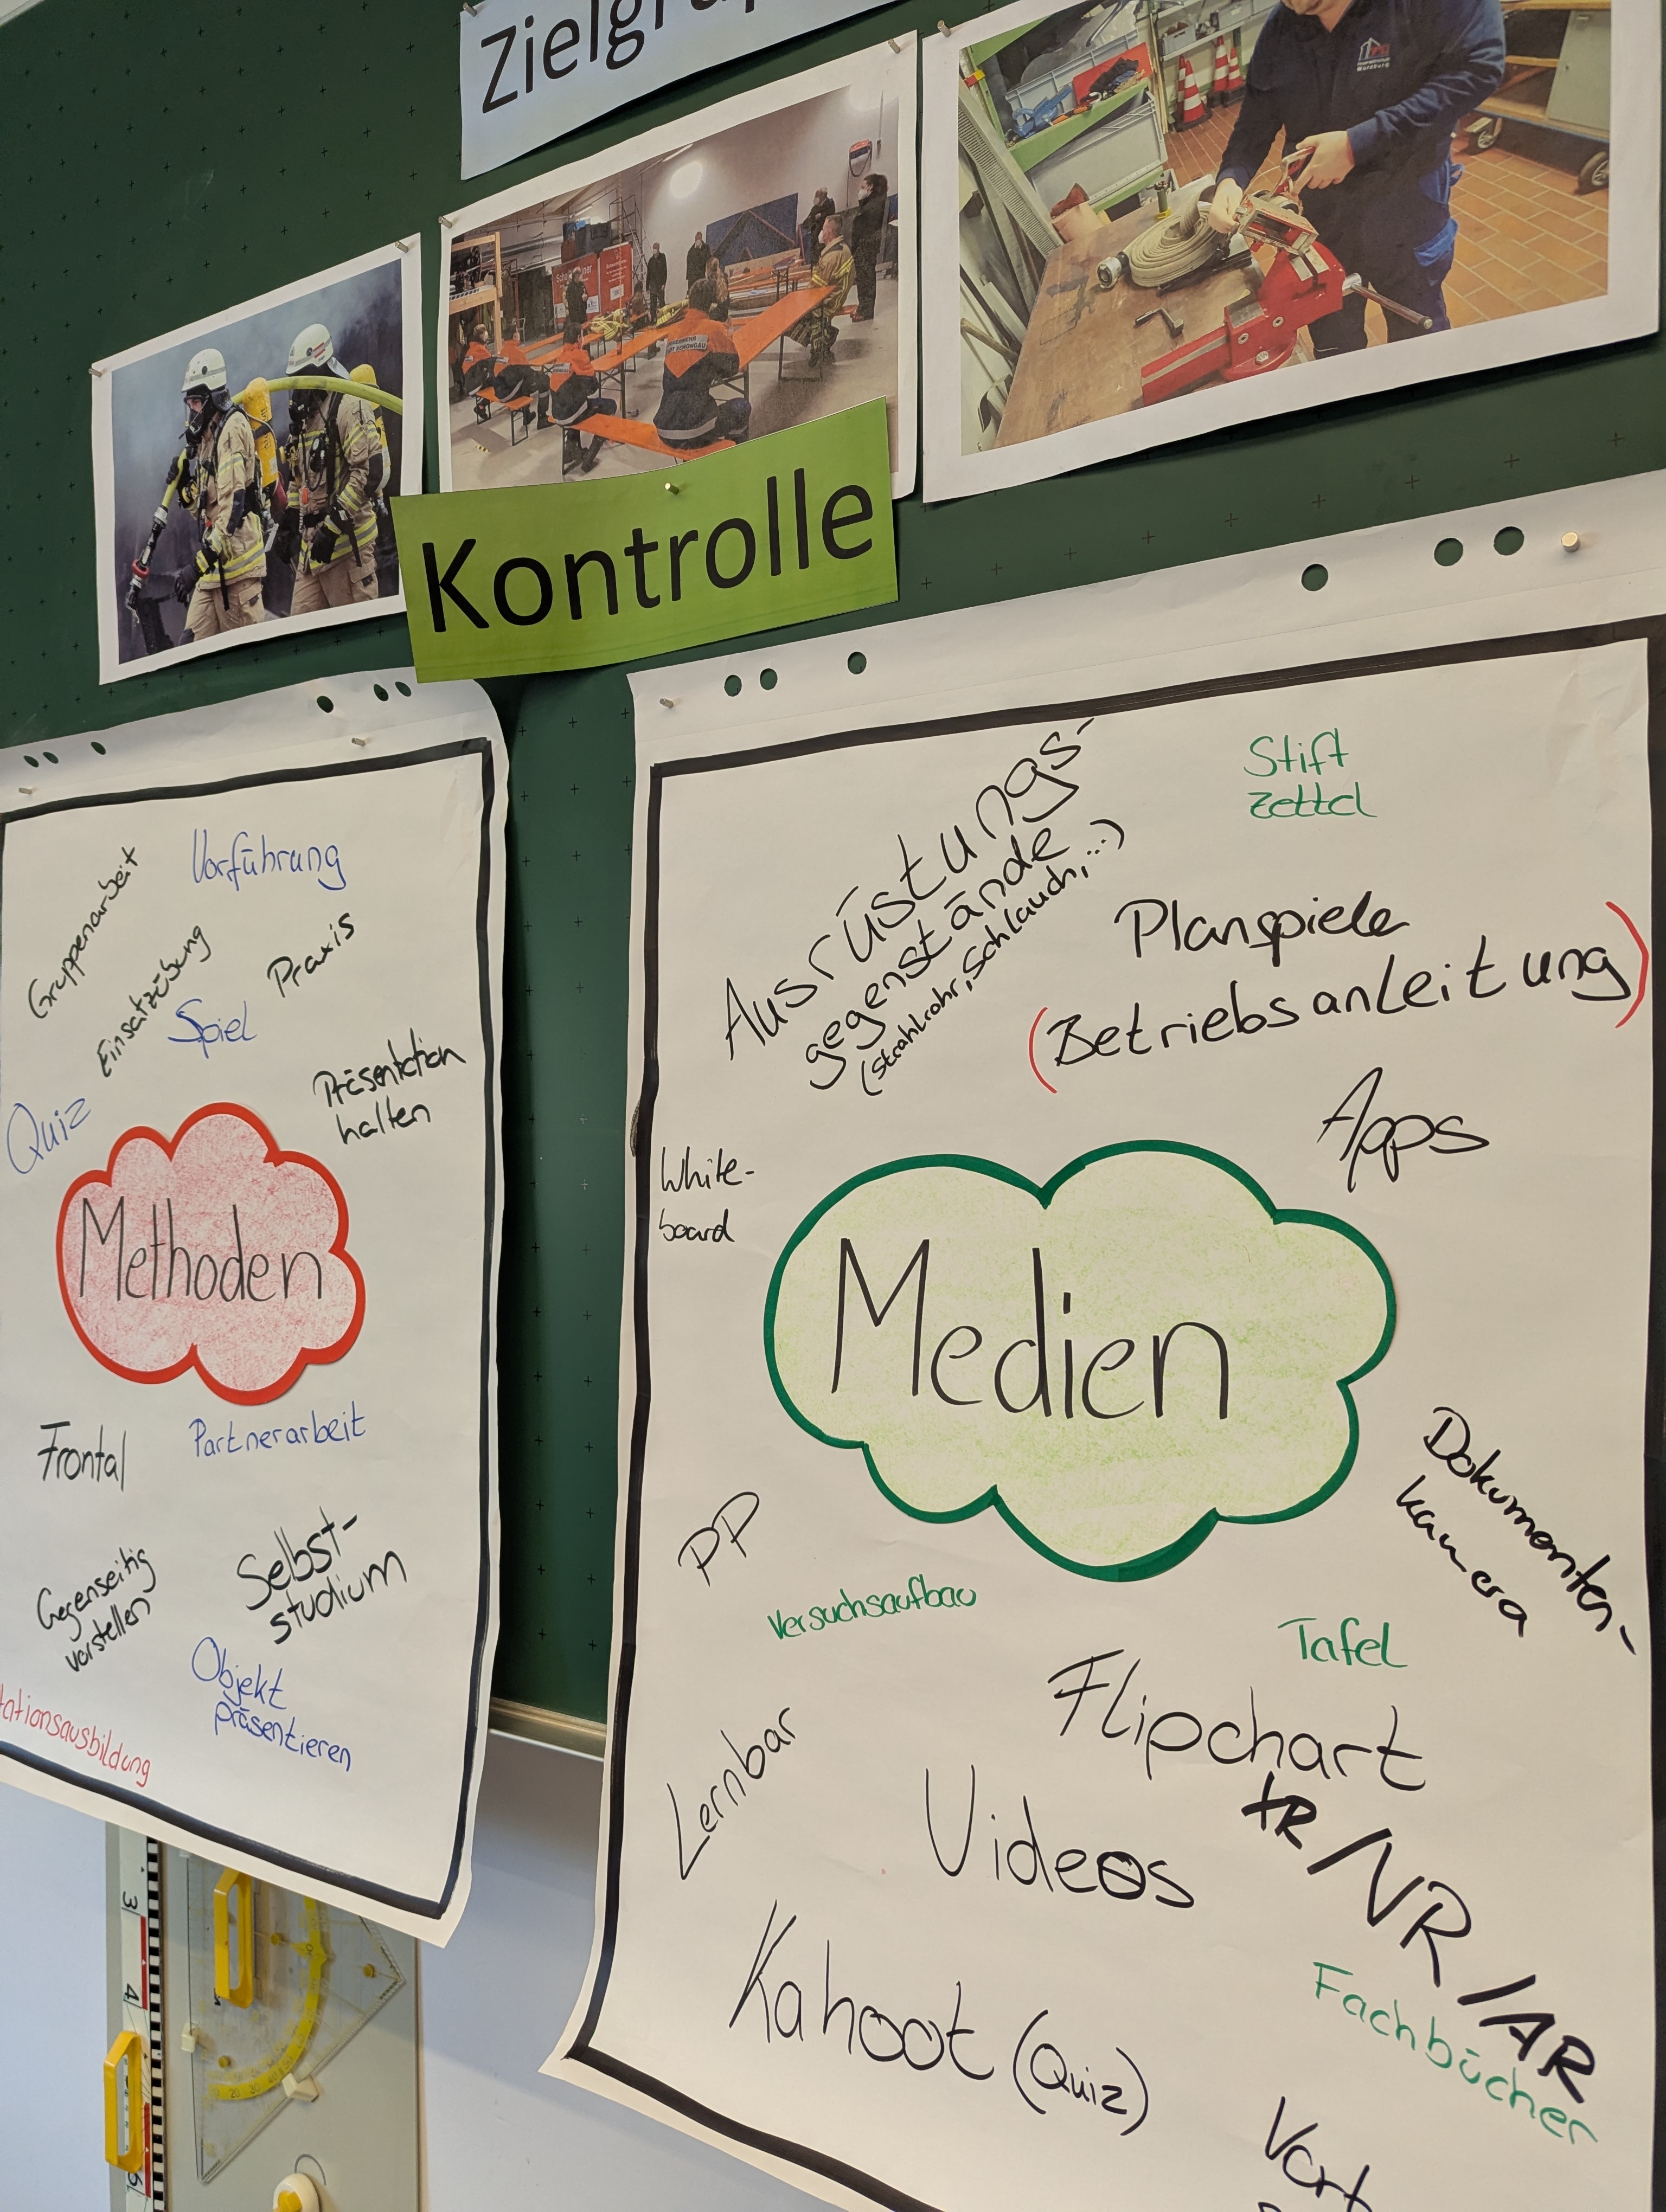 Kontrolle
Gruppenarbeit
Vorführung
Einsatzübung
Praxis
Spiel
Quiz
Präsentation
halten
Methoden
Frontal
Partnerarbeit
Gegenseitig
vorstellen
Selbst-
studium
Objekt
präsentieren
Ausrüstungs-
gegenstände
(Strahlrohr, Schlauch, ...)
Stift
Zettel
Planspiele
(Betriebsanleitung)
Apps
White-
board
Medien
Dokumenten-
kamera
PP
Versuchsaufbau
Tafel
Flipchart
Lernbar
Videos
XR / VR / AR
Kahoot (Quiz)
Fachbücher
3
4